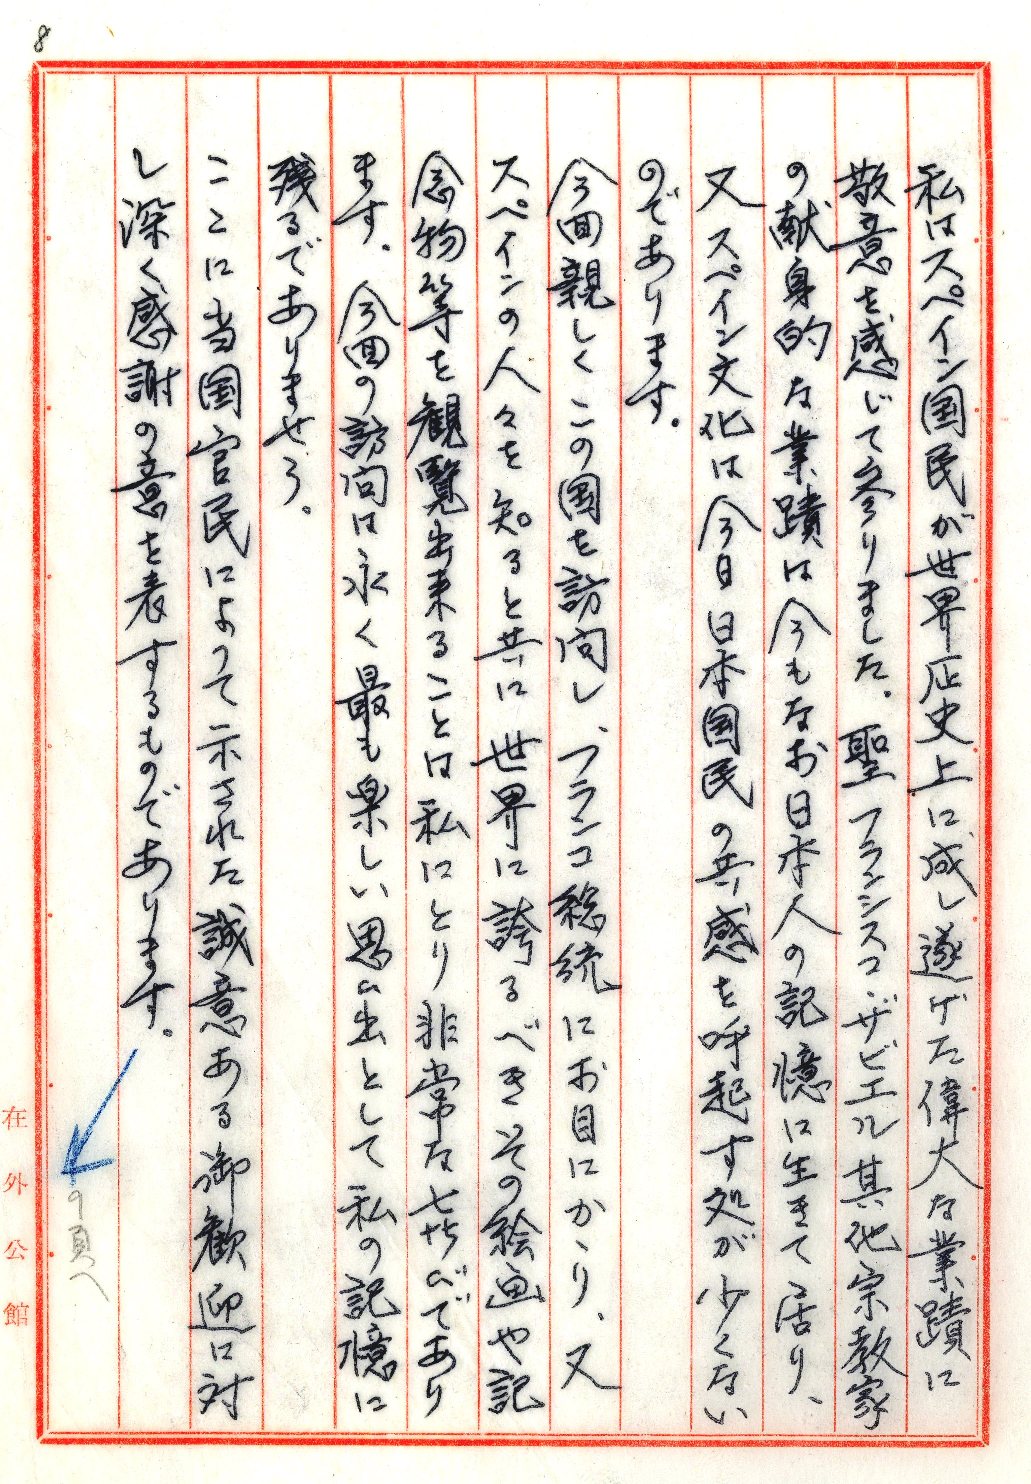 8
私はスペイン国民が世界歴史上に成し遂げた偉大な業蹟に
敬意を感じて参りました。聖フランシスコ・ザビエル其他宗教家
の献身的な業蹟は今もなお日本人の記憶に生きて居り、
又スペイン文化は今日日本国民の共感を呼起す処が少くない
のであります。
今回親しくこの国を訪問し、フランコ総統にお目にかゝり、又
スペインの人々を知ると共に世界に誇るべきその絵画や記
念物等を観覧出来ることは私にとり非常な喜びであり
ます。今回の訪問は永く最も楽しい思い出として私の記憶に
残るでありませう。
ここに当国官民によって示された誠意ある御歓迎に対
し深く感謝の意を表するものであります。
9頁へ
在外公館